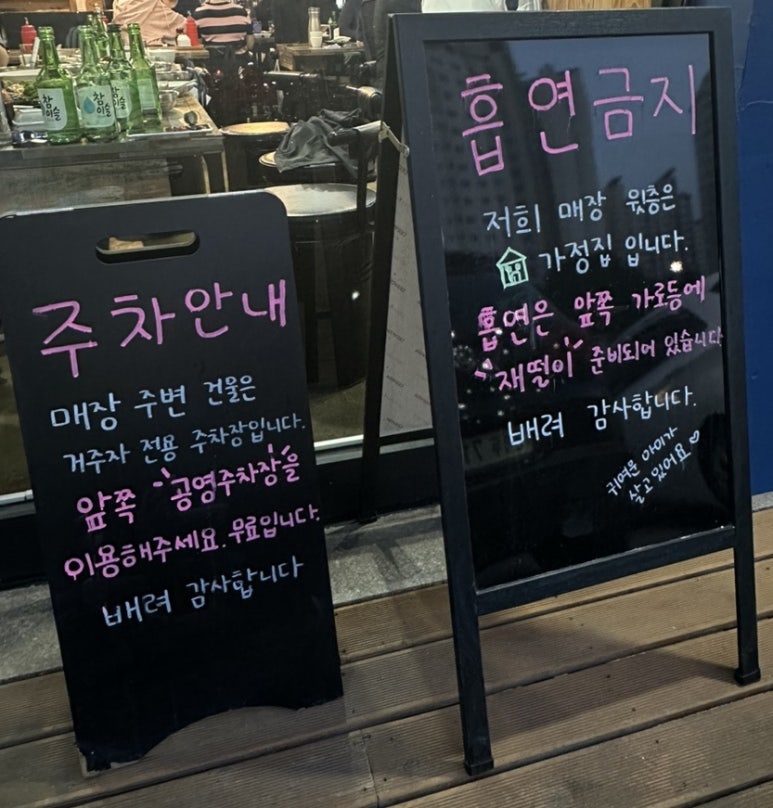 참이슬
참이슬
참이슬
주차안내
매장 주변 건물은
거주자 전용 주차장입니다.
앞쪽 공영주차장을
이용해주세요. 무료입니다.
배려 감사합니다
흡연금지
저희 매장 윗층은
가정집 입니다.
흡연은 앞쪽 가로등에
재떨이 준비되어 있습니다
배려 감사합니다.
귀여운 아이가
살고 있어요♡